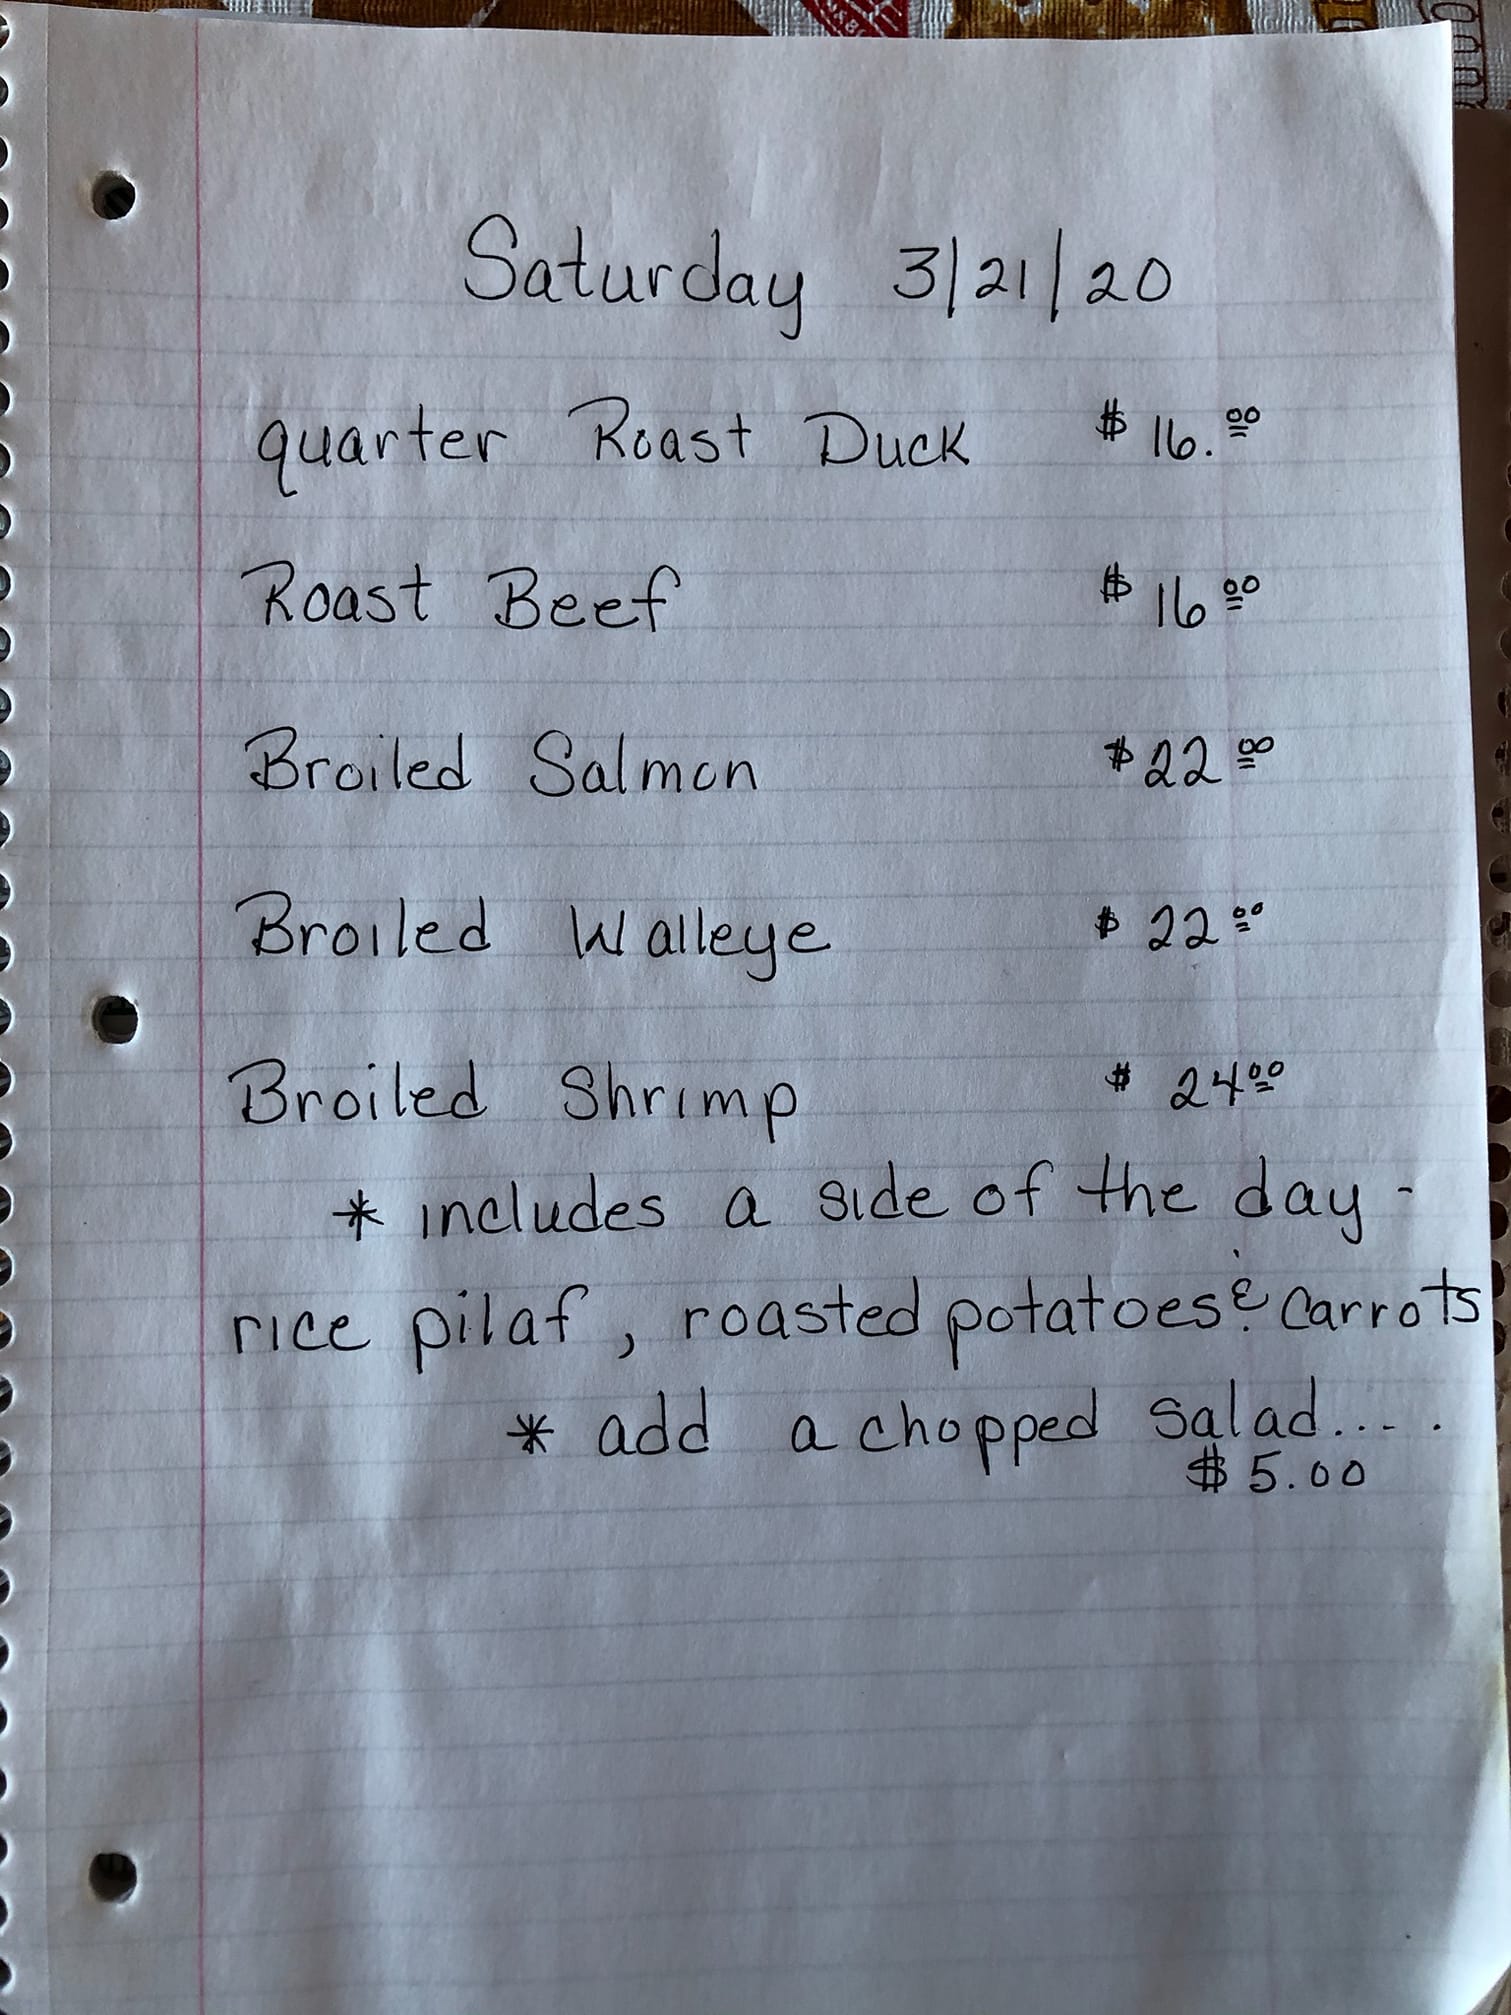 Saturday 3/21/20
quarter Roast Duck $16.00
Roast Beef $16 00
Broiled Salmon $22 00
Broiled Walleye $22 00
Broiled Shrimp $24 00
* includes a side of the day -
rice pilaf, roasted potatoes & carrots
* add a chopped salad....
$5.00